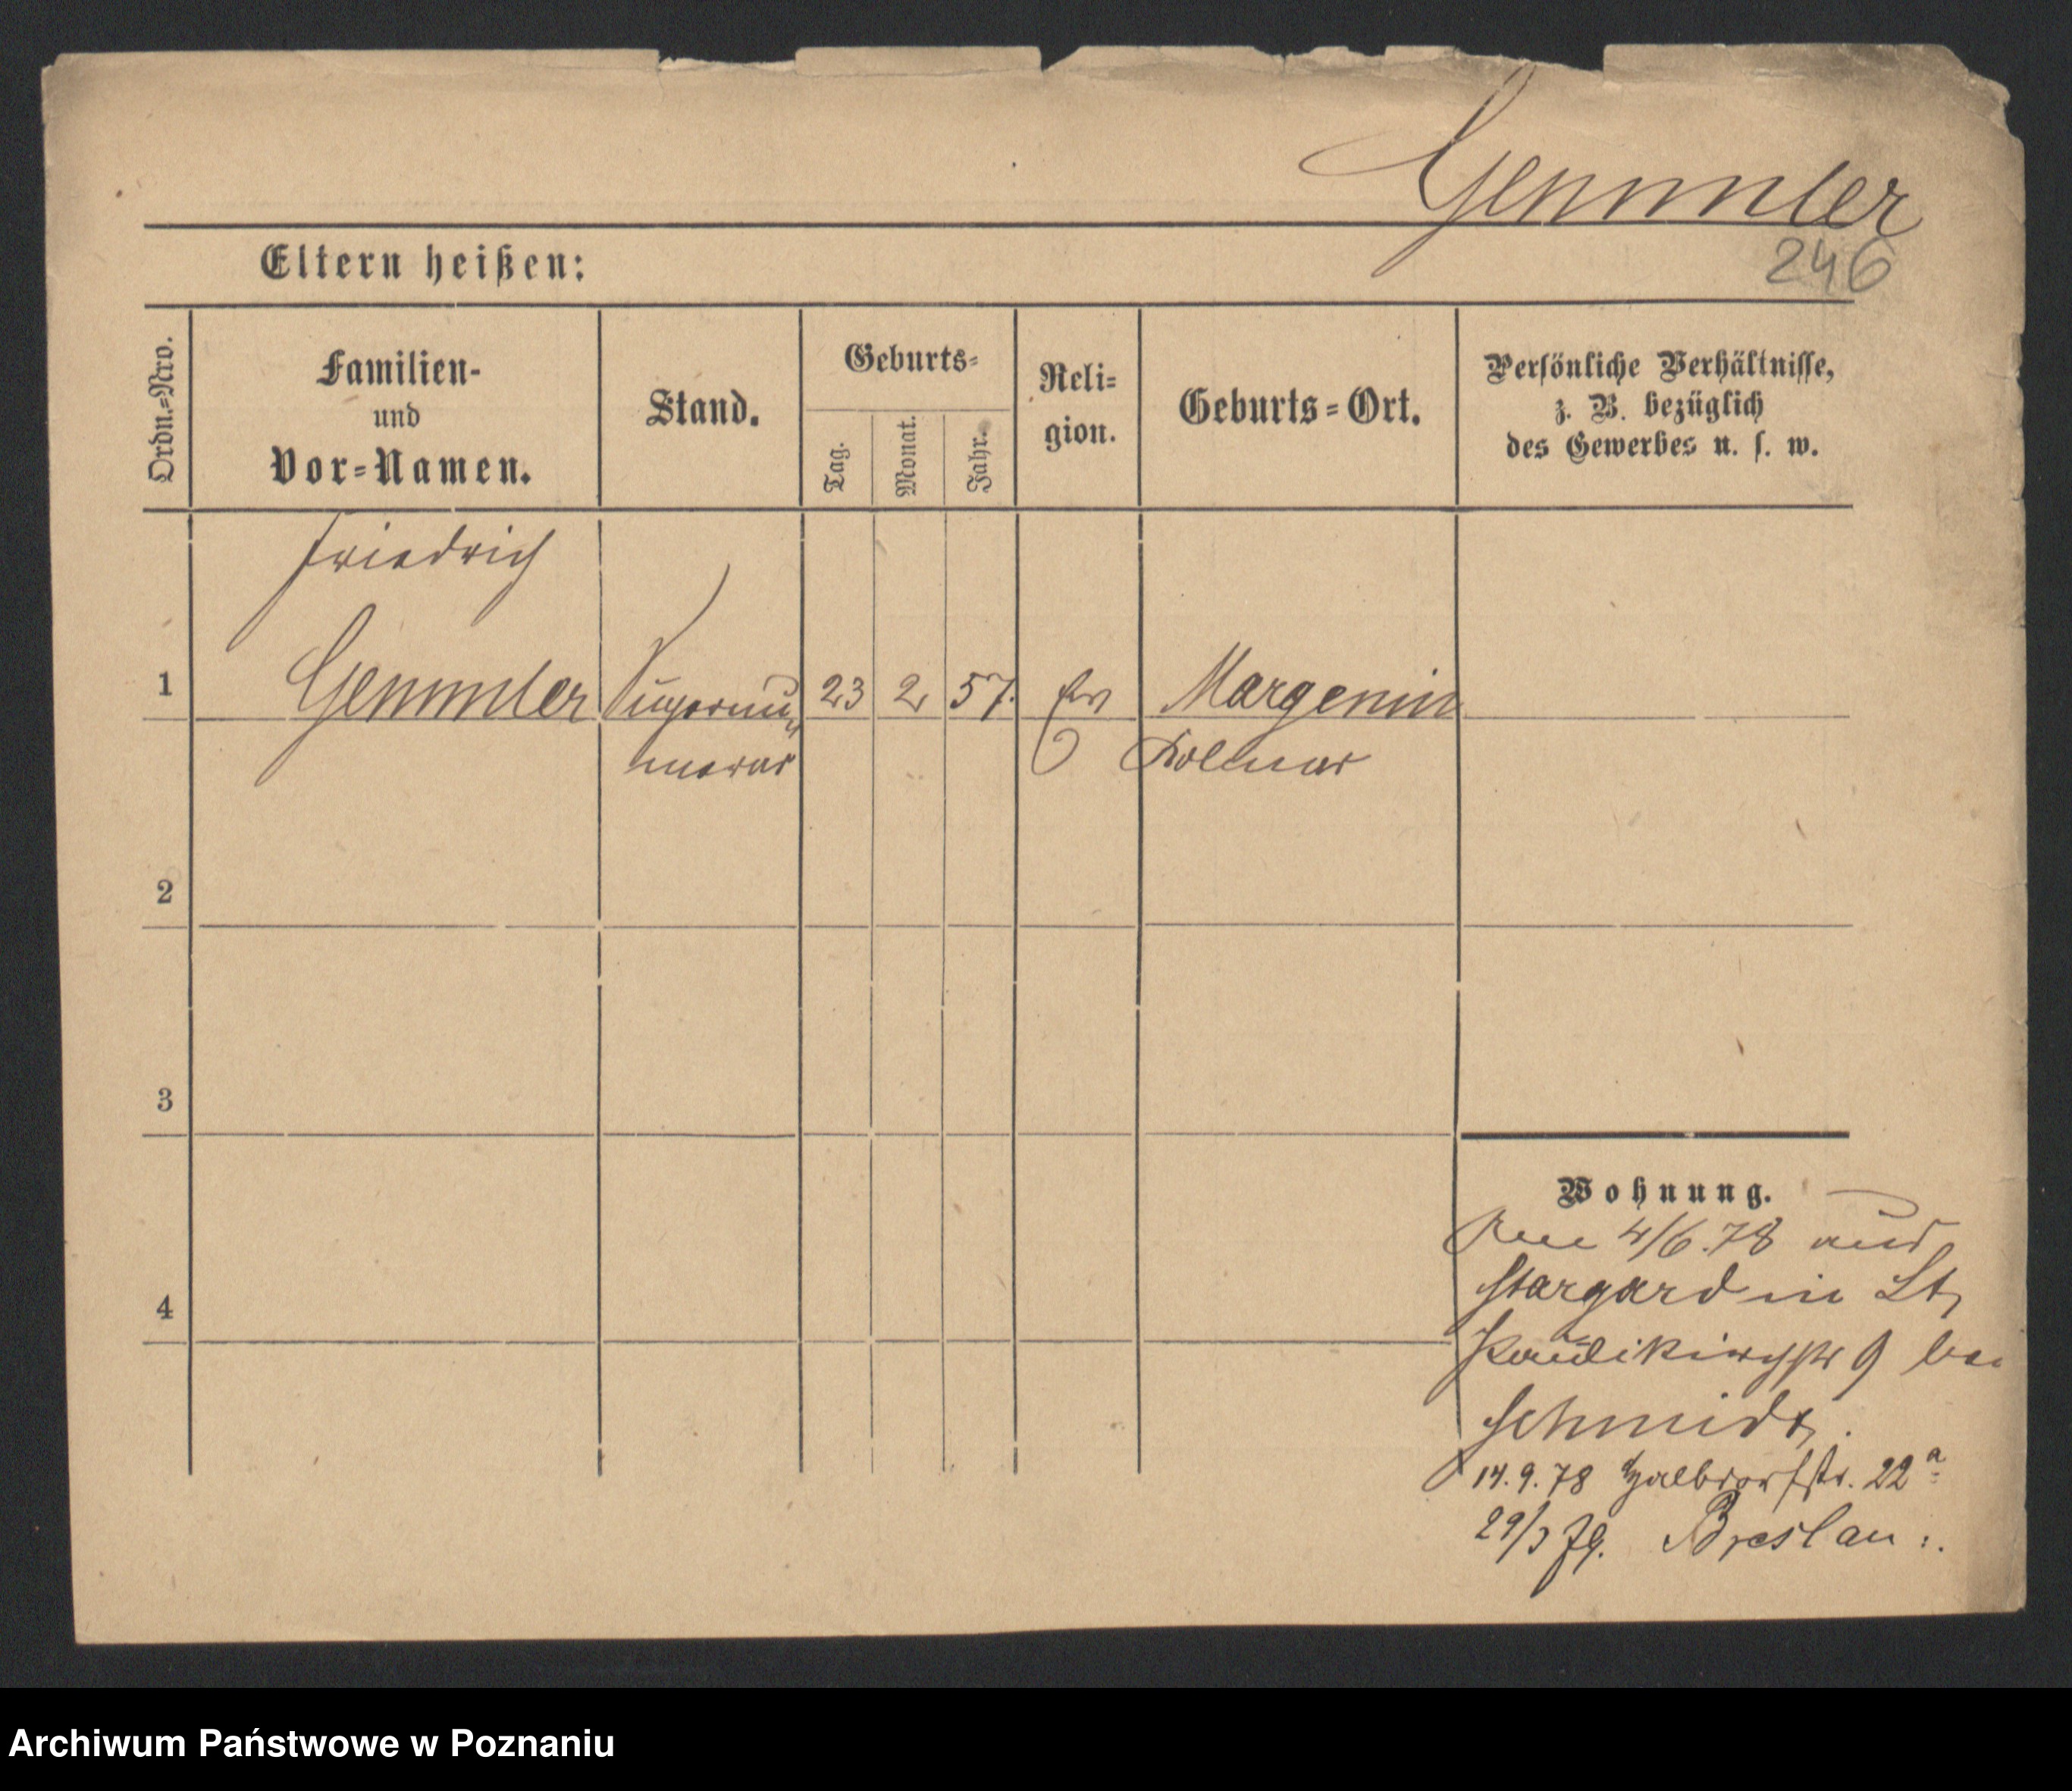 Gemmler
246
Eltern heißen:
Ordn.-Nro.
Familien-
und
Vor-Namen.
Stand.
Geburts-
Tag.
Monat.
Jahr.
Reli-
gion.
Geburts-Ort.
Persönliche Verhältnisse,
z. B. bezüglich
des Gewerbes u. s. w.
Friedrich
1 Gemmler Supernu- 23 2 57. Ev Margonin
merar Kolmar
2
3
4
Wohnung.
4/6.78 aus
Stargard in
9 bei
Schmidt.
14.9.78 Halbdorfstr. 22a
29/3 79. Breslau
Archiwum Państwowe w Poznaniu